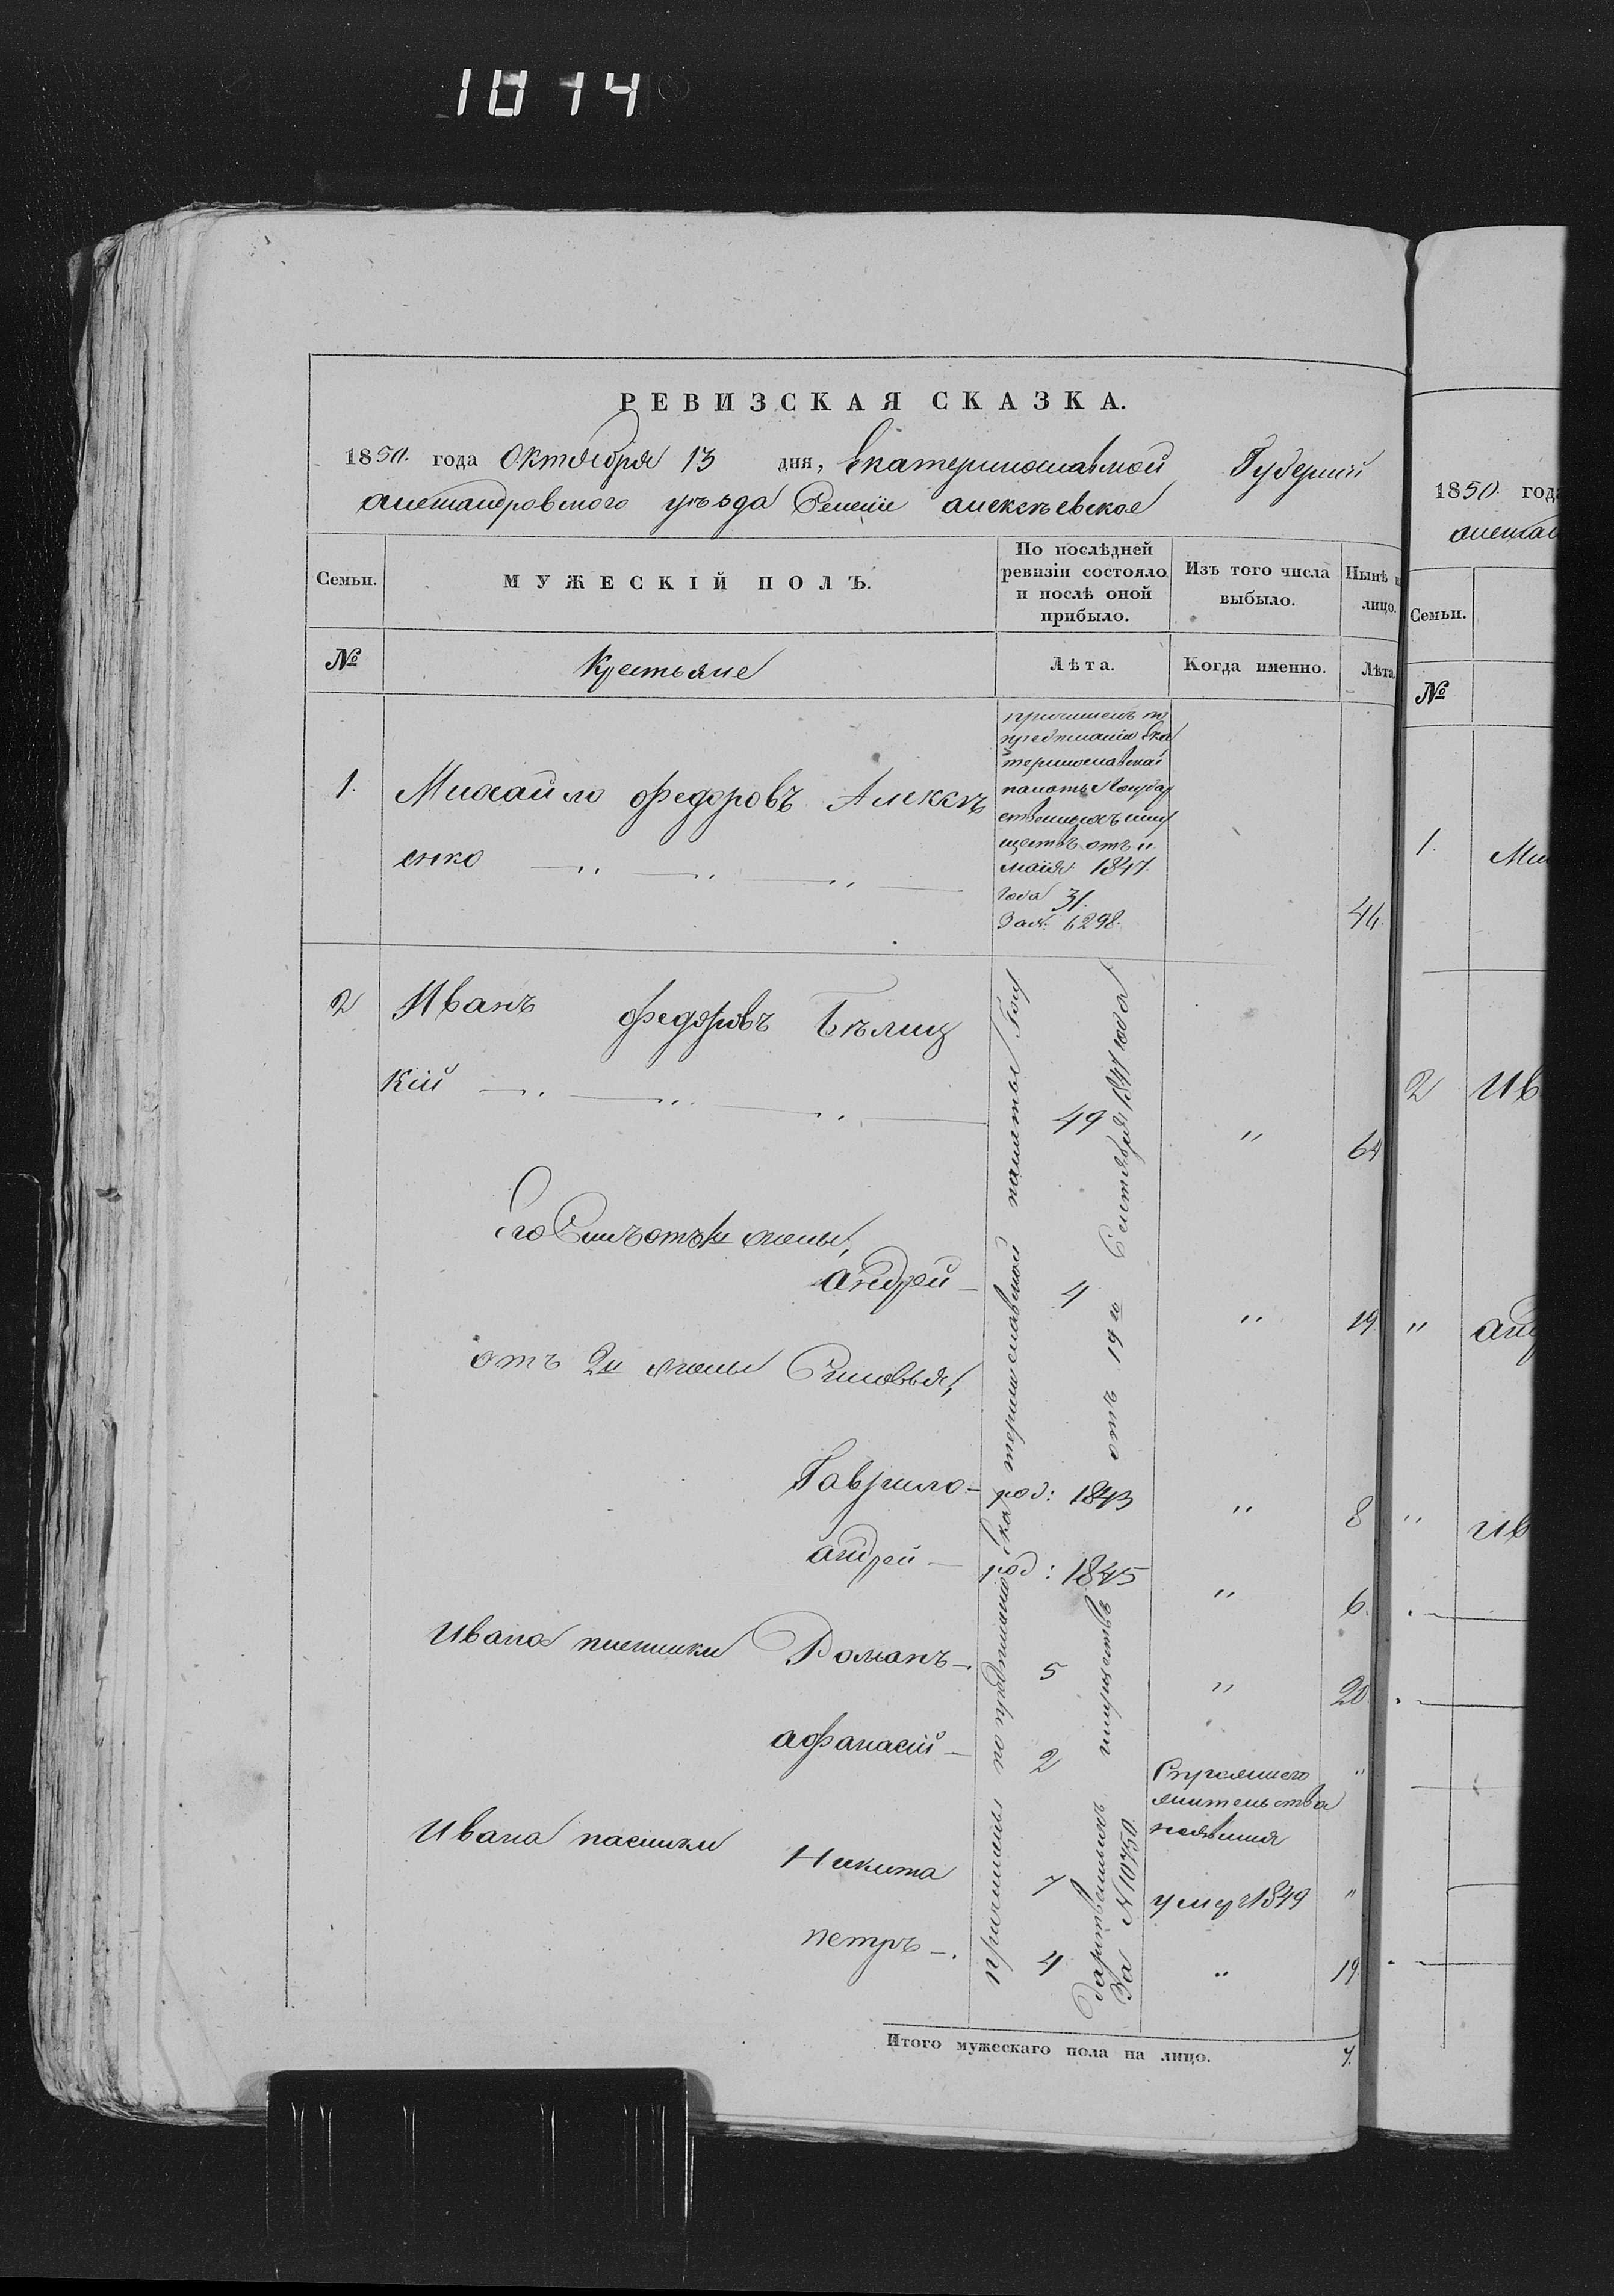 1014
РЕВИЗСКАЯ СКАЗКА.
1850. года Октября 13 дня, Екатеринославской Губернии
Александровского уѣзда Селение Алексѣевское
Семьи.
МУЖЕСКІЙ ПОЛЪ.
По послѣдней
ревизіи состояло
и послѣ оной
прибыло.
Изъ того числа
выбыло.
Нынѣ н
лицо.
№
Крестьяне
Лѣта.
Когда именно.
Лѣта
1.
Михайло Федоровъ Алексѣ
енко
причисленъ по
предписанію Ека
теринославской
палаты Государ
ственныхъ иму
ществъ отъ 11
маія 1847.
года 31.
За №: 6298.
46.
2
Иванъ Федоровъ Бѣлиц
кій
49
"
64
Его Сынъ отъ 1й жены,
Андрей
4
"
19.
отъ 2й жены Сыновья,
Гаврило
род: 1843
"
8
Андрей
род: 1845
"
6.
Ивана пасынки Романъ
5
"
20.
Афанасій
2
"
Ивана пасынки Никита
7
умер 1849
"
Петръ
4
"
19
причислены по предписанію Екатеринославской палаты Госу
дарственныхъ имуществъ отъ 19го Сентября 1847 года
За №10750
Итого мужескаго пола на лицо.
7.
1850. года
Семьи.
№
1.
Ми
2
Ив
"
Анд
"
Ив